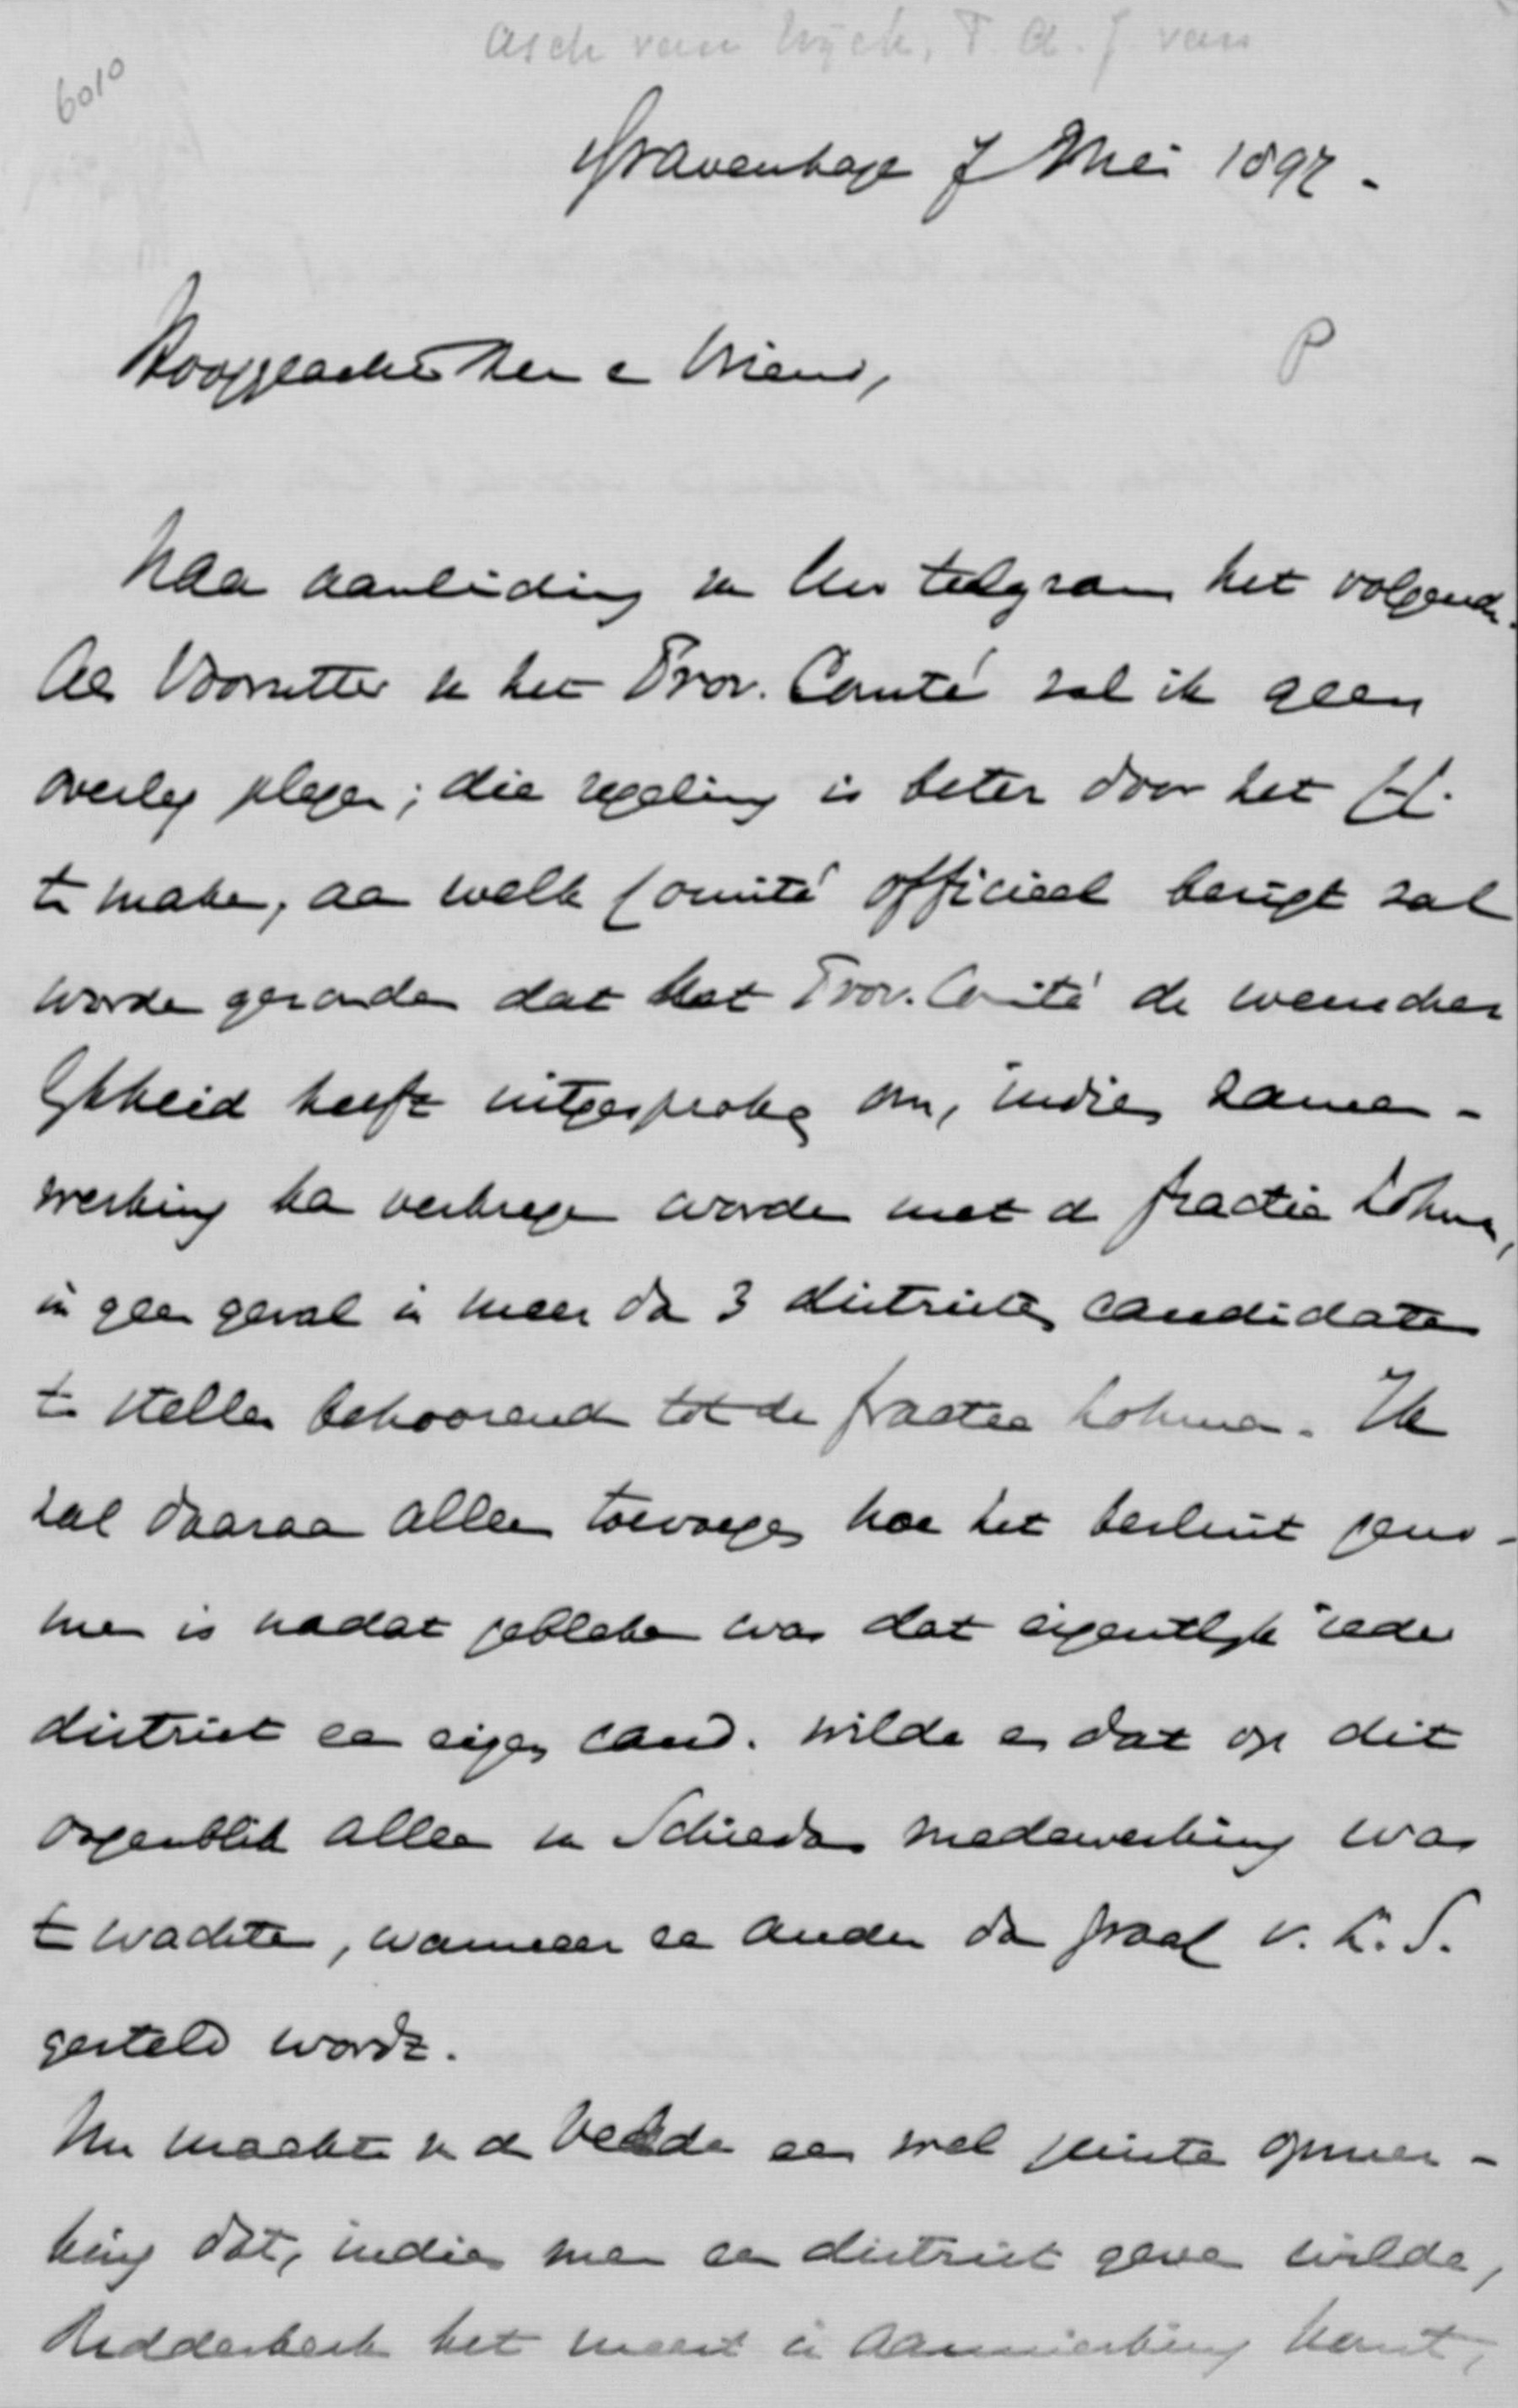 Asch van Wijck, T. A. J. van
6010
's Gravenhage 7 Mei 1897.
Hooggeachte Heer en Vriend,
P
Naar aanleiding van Uw telegram het volgende.
Als Voorzitter van het Prov. Comité zal ik geen
overleg plegen; die regeling is beter door het
te maken, aan welk Comité officieel berigt zal
worden gezonden dat het Prov. Comité de wensche
lijkheid heeft uitgesproken om, indien zamen-
werking kan verkregen worden met de fractie Lohman,
in geen geval in meer dan 3 districten candidaten
te stellen behoorend tot de fractie Lohman. Ik
zal daaraan alleen toevoegen hoe het besluit geno-
men is nadat gebleken was dat eigentlijk ieder
district een eigen cand. wilde en dat op dit
oogenblik alleen van Schiedam medewerking was
te wachten, wanneer een ander dan graaf v. L. S.
gesteld wordt.
Nu maakte v d een wel juiste opmer-
king dat, indien men een district geven wilde,
Ridderkerk het meest in aanmerking komt,